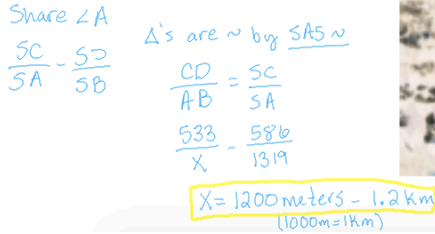 Share ∠A
SC/SA - SD/SB
Δ's are ~ by SAS ~
CD/AB = SC/SA
533/X - 586/1319
X = 1200 meters - 1.2 km
(1000m=1km)